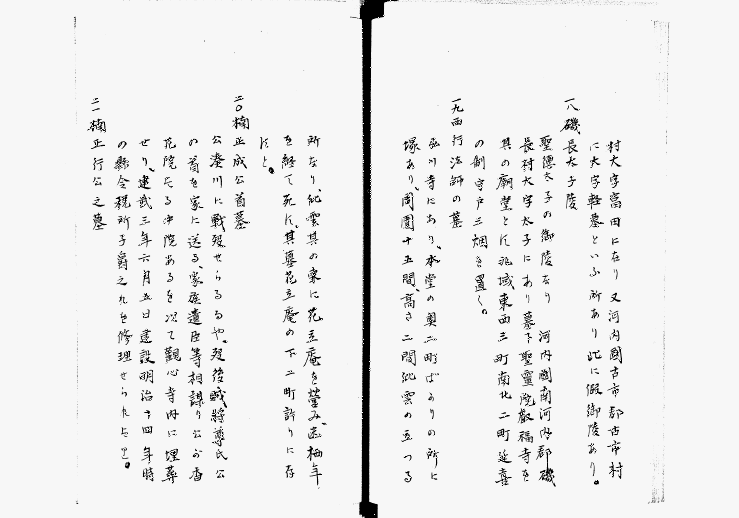 村大字富田に在り又河内國古市郡古市村
に大字軽墓といふ所あり此に假御陵あり。
一八磯長太子陵
聖德太子の御陵なり 河内國南河内郡磯
長村大字太子にあり墓下聖靈院叡福寺を
其の廟堂とす兆域東西三町南北二町延喜
の制守戸三烟を置く。
一九西行法師の墓
弘川寺にあり、本堂の奥二町ばかりの所に
塚あり、周圍十五間、高さ二間紫雲の立つる
所なり、紫雲其の東に花立庵を營み、志栖年
を経て死す、其墓花立庵の下二町許りに存
すと。
二〇楠正成公首墓
公湊川に戰歿せらるるや、歿後賊将尊氏公
の首を家に送る、家族遺臣等相謀り公が香
花院たる中院あるを以て觀心寺内に埋葬
せり、建武三年六月五日建設明治十四年時
の縣令税所子爵之れを修理せられたりと。
二一楠正行公之墓